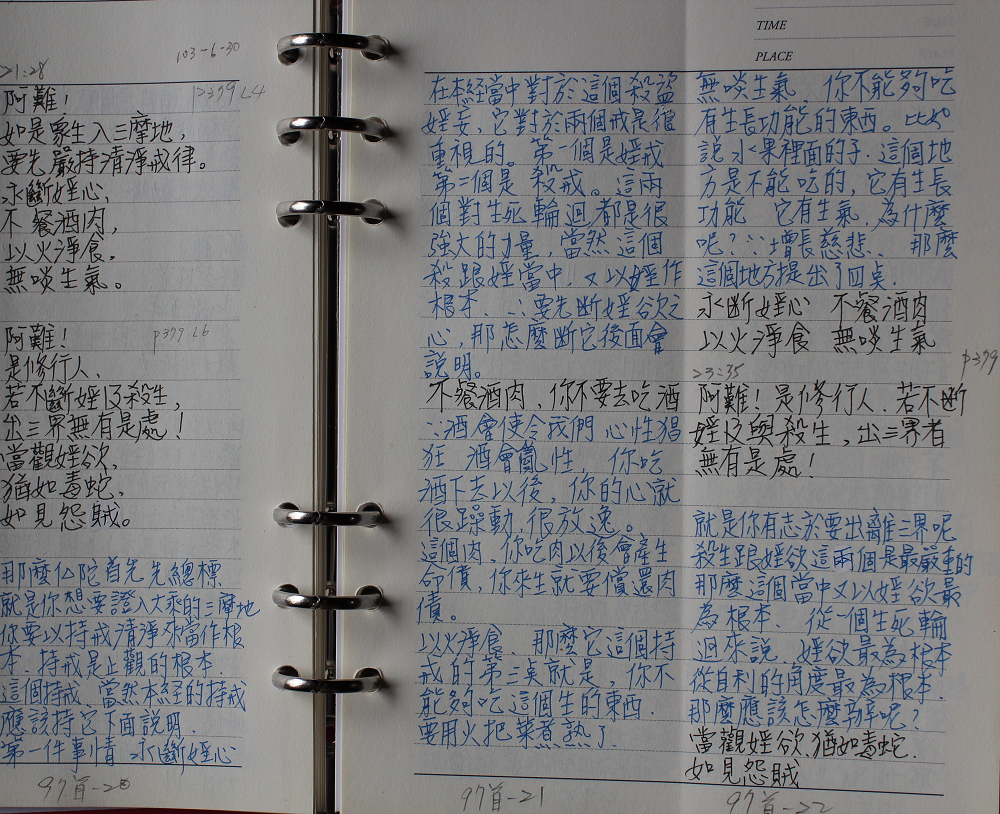 103-6-30
21:28
阿難！ p379 L4
如是衆生入三摩地，
要先嚴持清淨戒律。
永斷婬心，
不餐酒肉，
以火淨食。
無啖生氣。
阿難！ p379 L6
是修行人，
若不斷婬及殺生，
出三界無有是處！
當觀婬欲，
猶如毒蛇，
如見怨賊。
那麼仏陀首先先總標
就是你想要證入大乘的三摩地
你要以持戒清淨來當作根
本．持戒是止觀的根本．
這個持戒 當然本經的持戒
應該持它下面說明．
第一件事情 永斷婬心
97首-20
在本經當中對於這個殺盜
婬妄，它對於兩個戒是很
重視的。第一個是婬戒
第二個是 殺戒。這兩
個對生死輪迴都是很
強大的力量，當然這個
殺跟婬當中，又以婬作
根本．∴要先断婬欲之
心，那怎麼断它後面會
說明。
不餐酒肉．你不要去吃酒
∵酒會使令我們 心性猖
狂 酒會亂性， 你吃
酒下去以後，你的心就
很躁動，很放逸。
這個肉，你吃肉以後會產生
命債，你來生就要償還肉
債。
以火淨食．那麼它這個持
戒的第三奌就是，你不
能夠吃這個生的東西．
要用火把菜煮熟了．
97首-21
TIME
PLACE
無啖生氣 你不能夠吃
有生長功能的東西。比如
說水果裡面的子．這個地
方是不能吃的，它有生長
功能 它有生氣．為什麼
呢？∵增長慈悲． 那麼
這個地方提出了四奌．
永断婬心 不餐酒肉
以火淨食 無啖生氣
23:35 p379
阿難！是修行人．若不断
婬及與殺生，出三界者
無有是處！
就是你有志於要出離三界呢
殺生跟婬欲這兩個是最嚴重的
那麼這個當中又以婬欲最
為根本． 從一個生死輪
迴來說．婬欲最為根本
從自利的角度最為根本．
那麼應該怎麼辦呢？
當觀婬欲．猶如毒蛇．
如見怨賊
97首-22